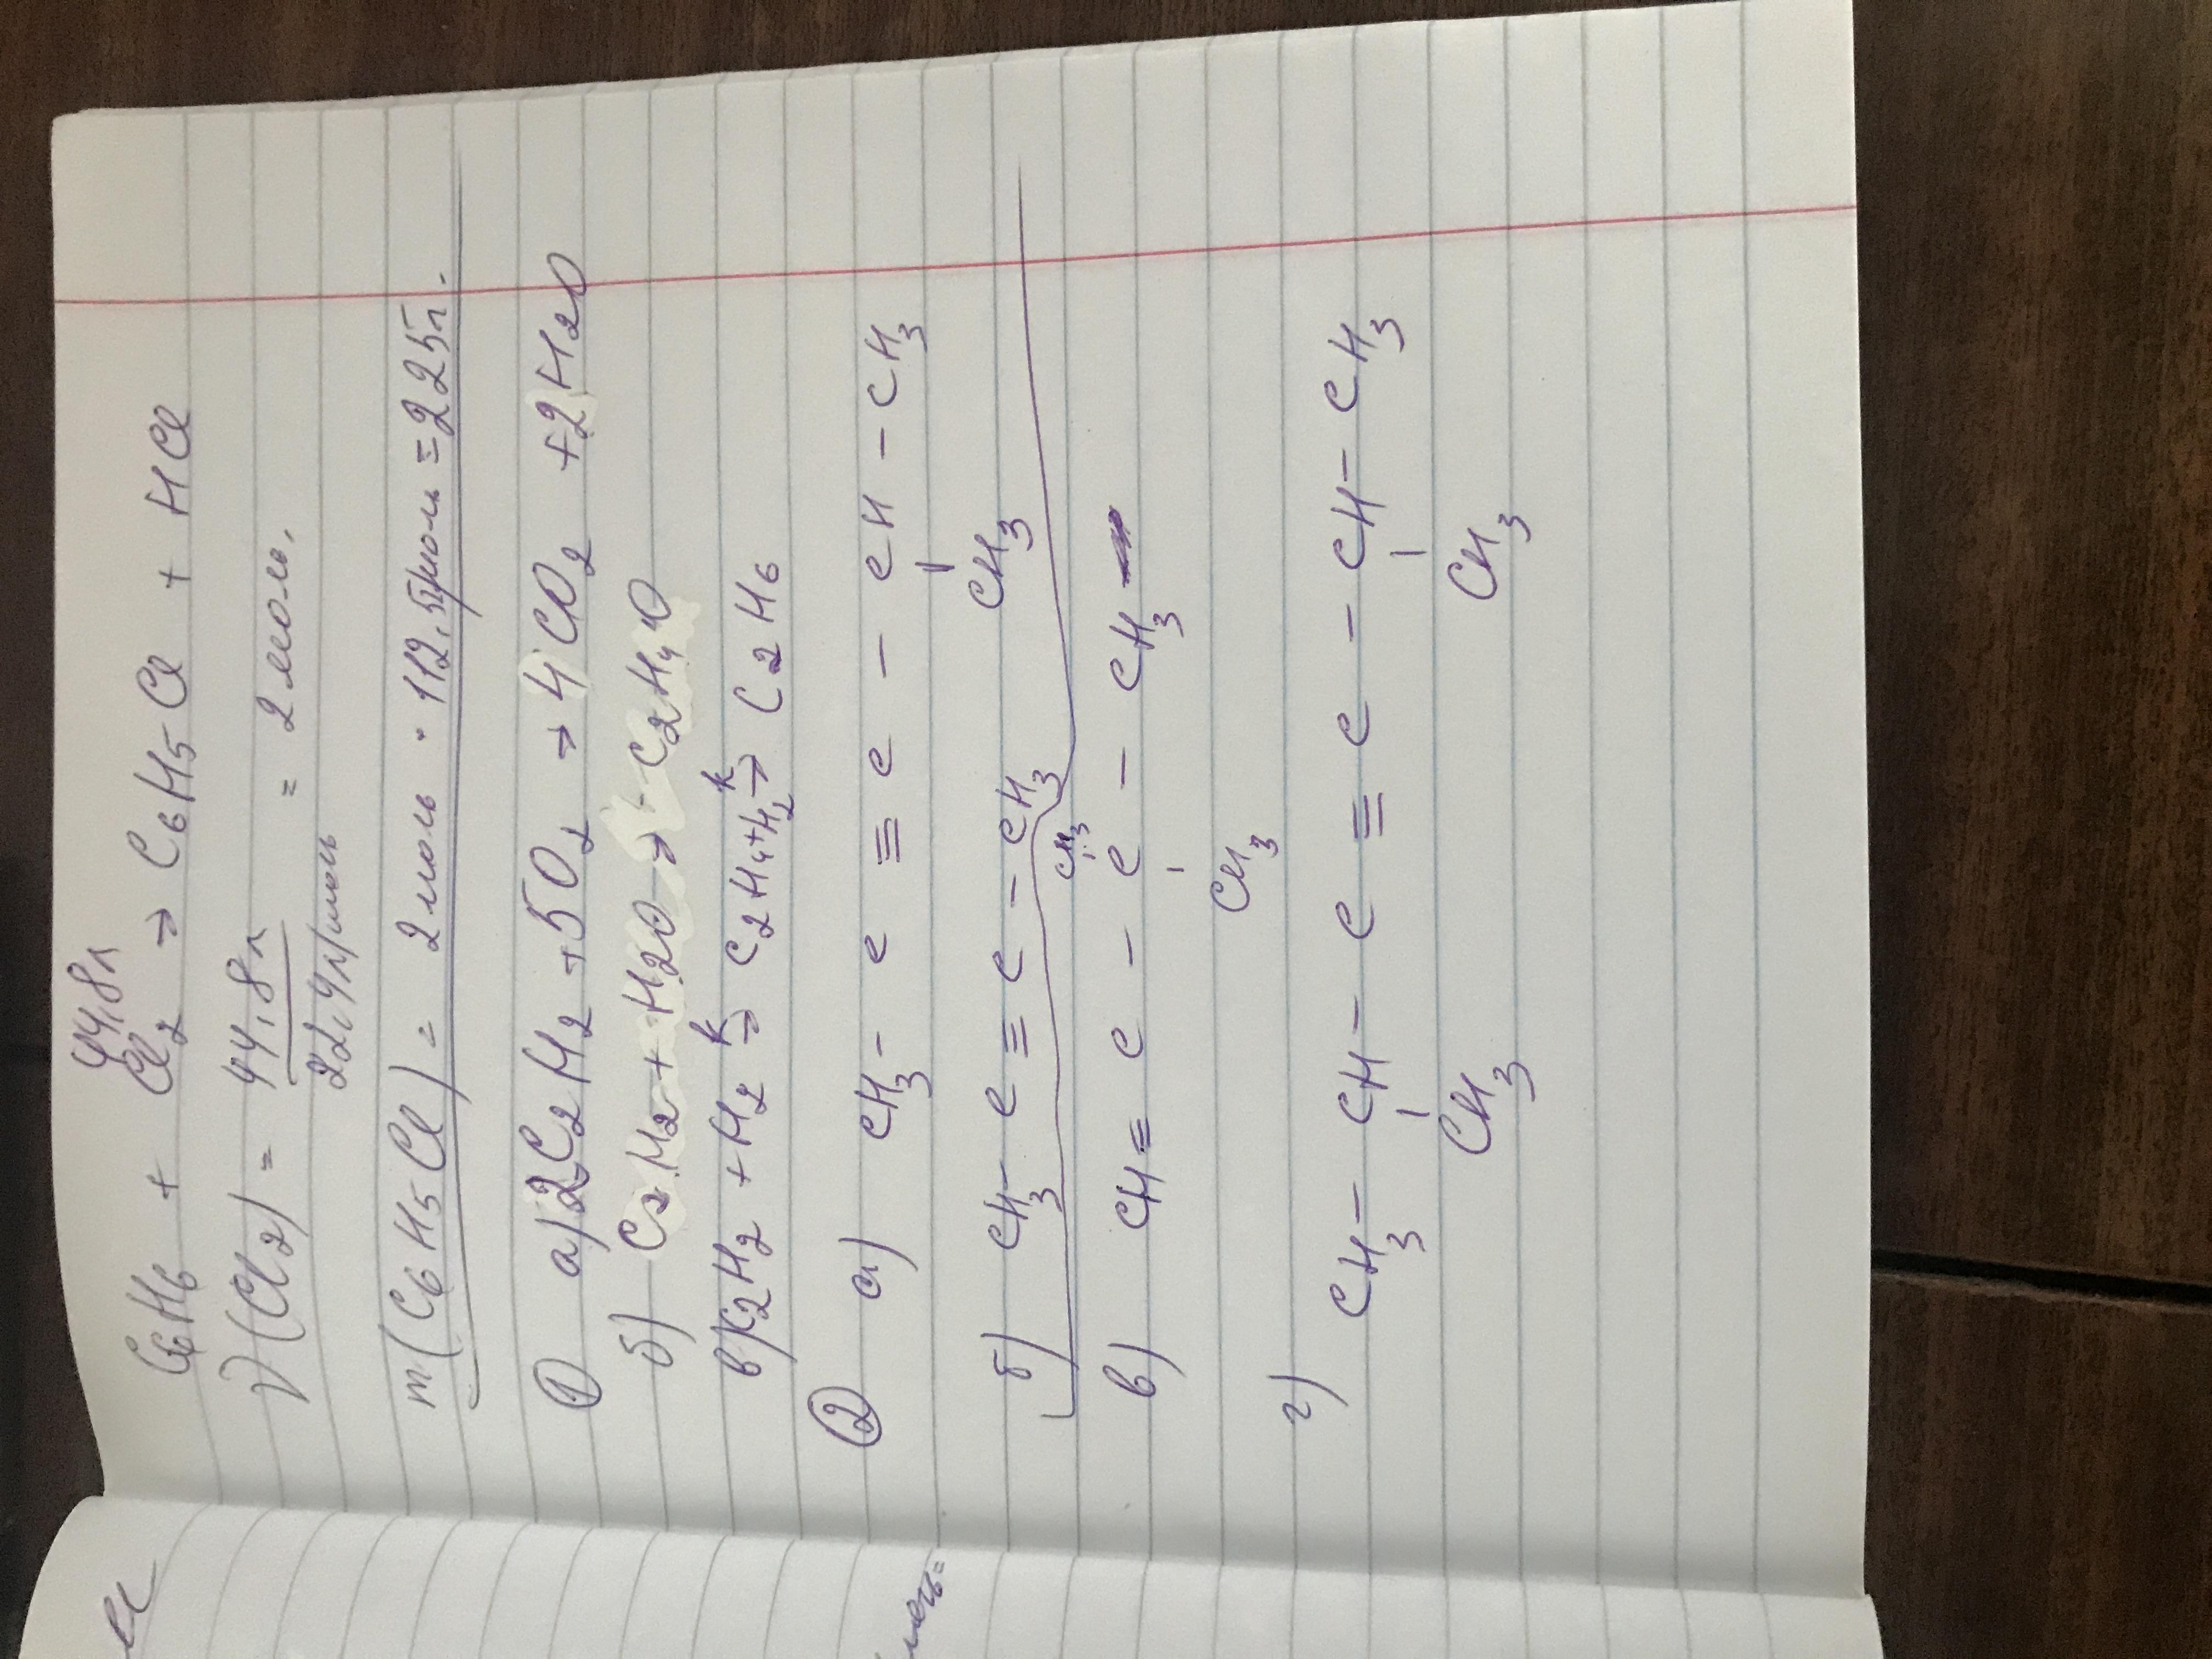 44,8л
C6H6 + Cl2 → C6H5Cl + HCl
ν(Cl2) = 44,8л / 22,4л/моль = 2 моль.
m(C6H5Cl) = 2 моль · 112,5г/моль = 225г.
① а) 2C2H2 + 5O2 → 4CO2 + 2H2O
б) C2H2 + H2O → C2H4O
в) C2H2 + H2 →k C2H4 + H2 →k C2H6
② а) CH3 - C ≡ C - CH - CH3
CH3
б) CH3 - C ≡ C - CH3
CH3
в) CH ≡ C - C - CH3
CH3
г) CH3 - CH - C ≡ C - CH - CH3
CH3 CH3